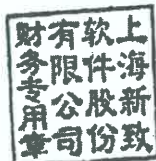 上海新致
软件股份
有限公司
财务专用章